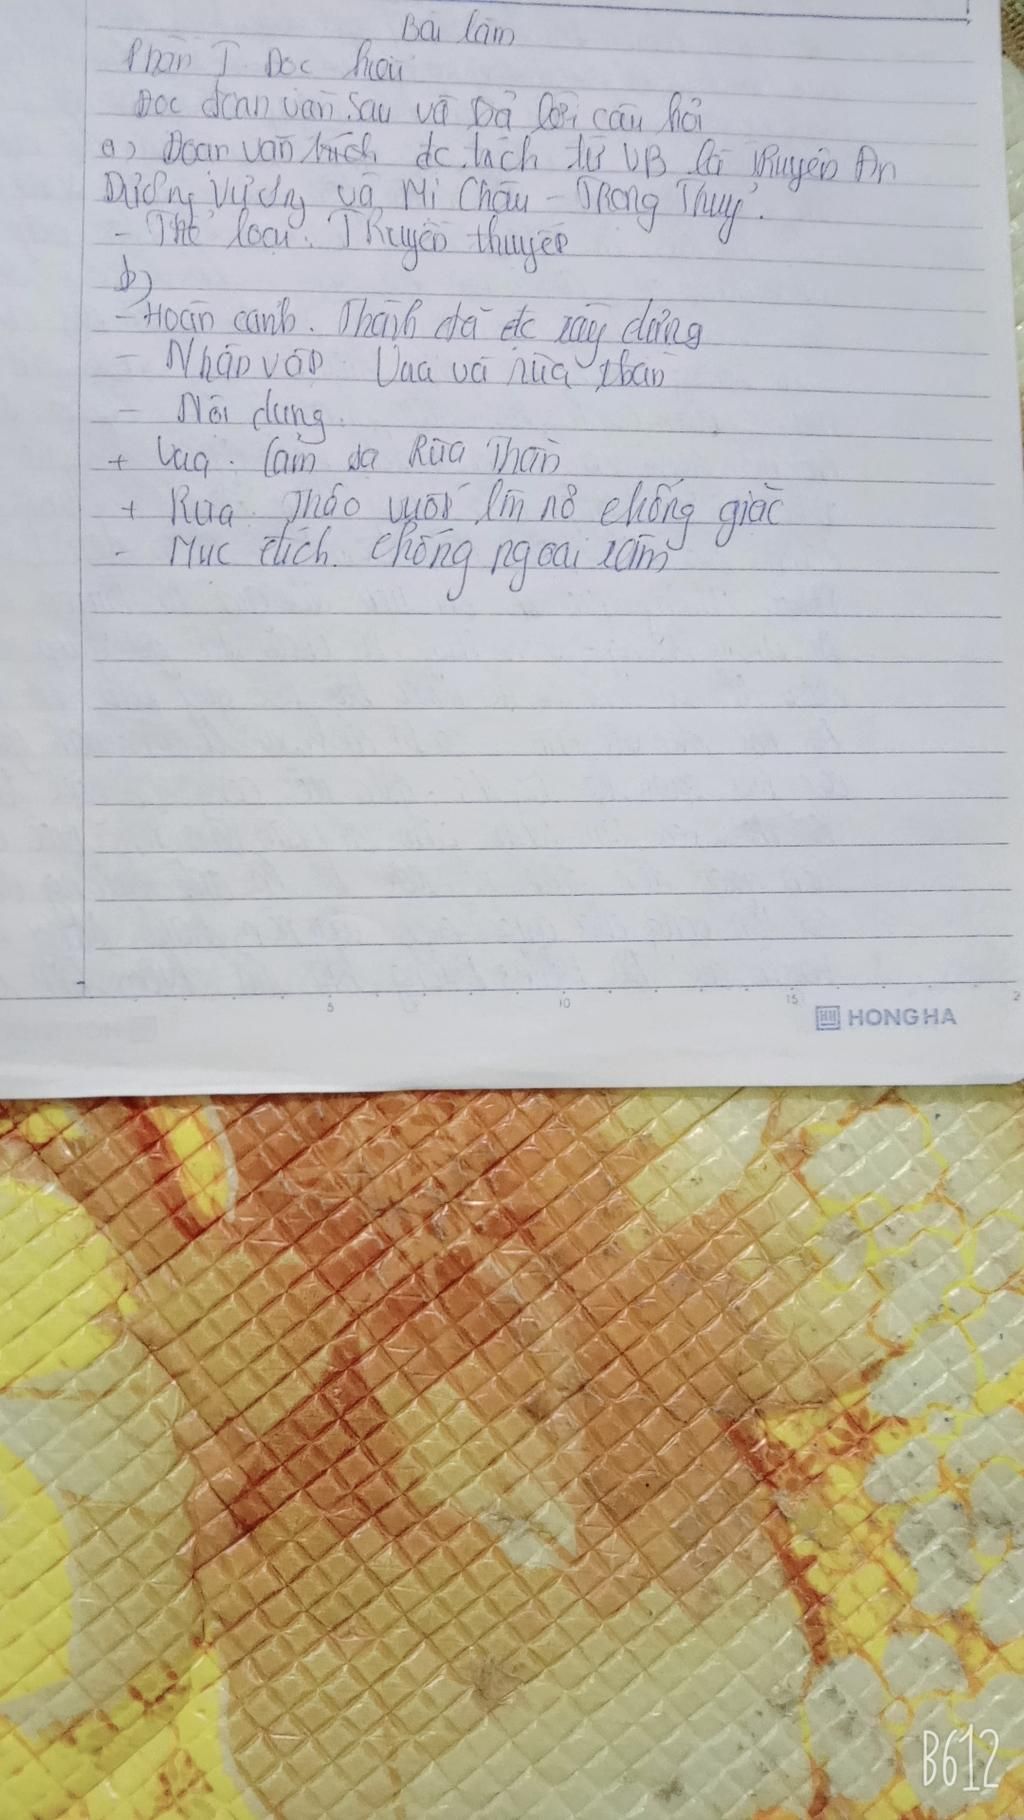 Bài làm
Phần I. Đọc hiểu
Đọc đoạn văn sau và trả lời câu hỏi
a) Đoạn văn trích đc tách từ VB là truyện An
Dương Vương và Mị Châu - Trọng Thuỷ.
- Thể loại: Truyền thuyết
b)
- Hoàn cảnh. Thành đã đc xây dựng
- Nhân vật Vua và rùa thần
- Nội dung.
+ Vua. Cảm tạ Rùa Thần
+ Rùa. Tháo vuốt làm nỏ chống giặc
- Mục đích. chống ngoại xâm
5 10 15 2
HH HONG HA
B612